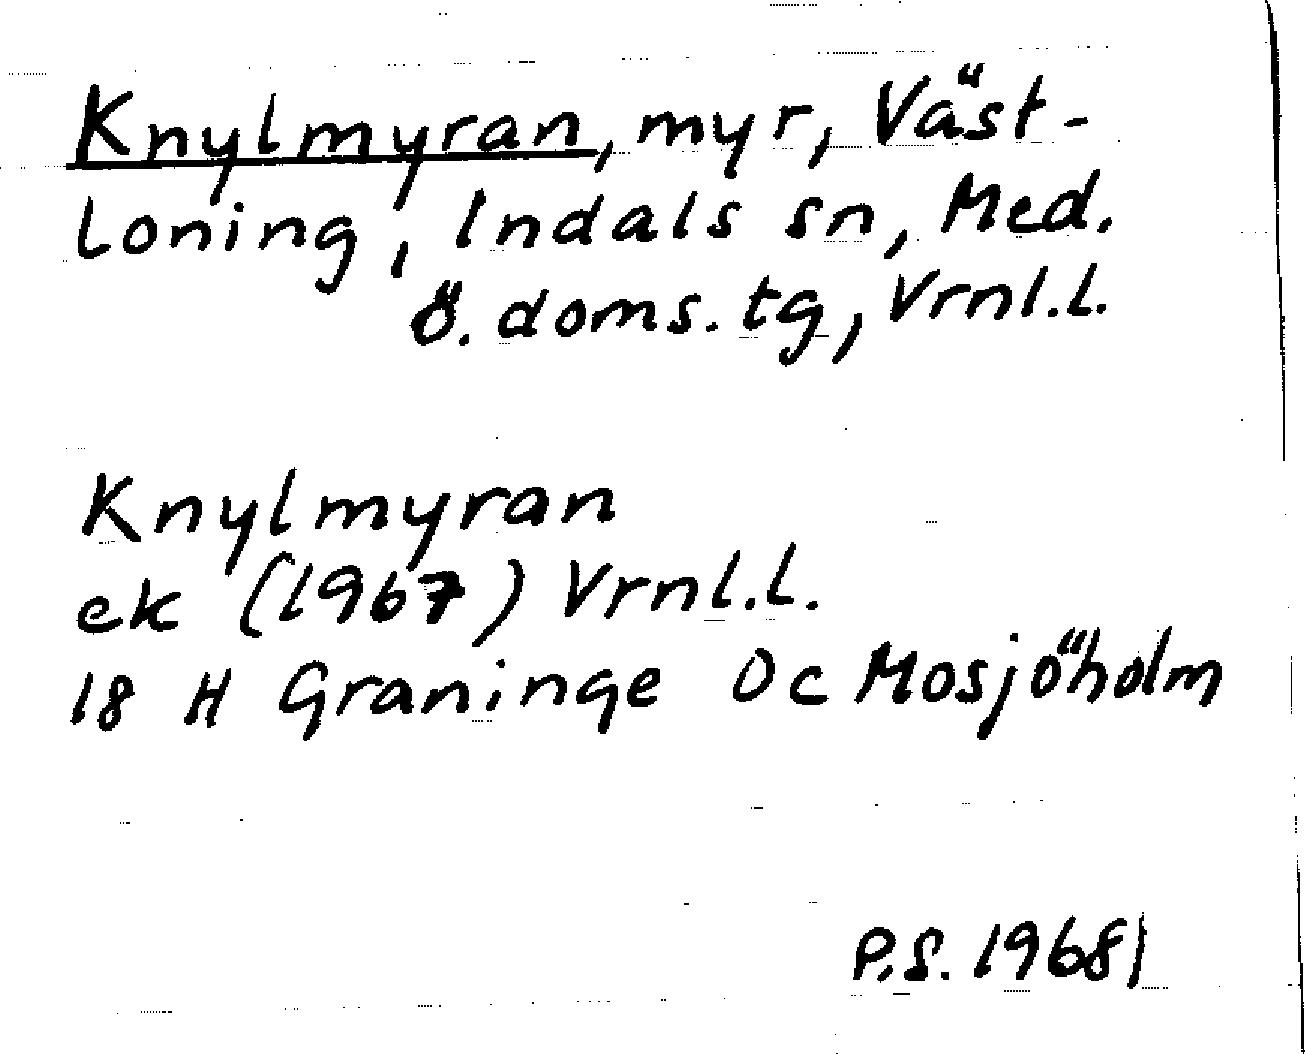 Knylmyran, myr, Väst-
loning, Indals sn, Med.
ö. doms. tg, Vrnl.l.
Knylmyran
ek (1967) Vrnl.l.
18 H Graninge Oc Mosjöholm
P.S. 1968